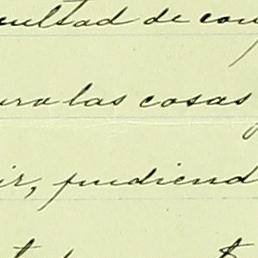 ultad de con
ura las cosas
ir, pudiend